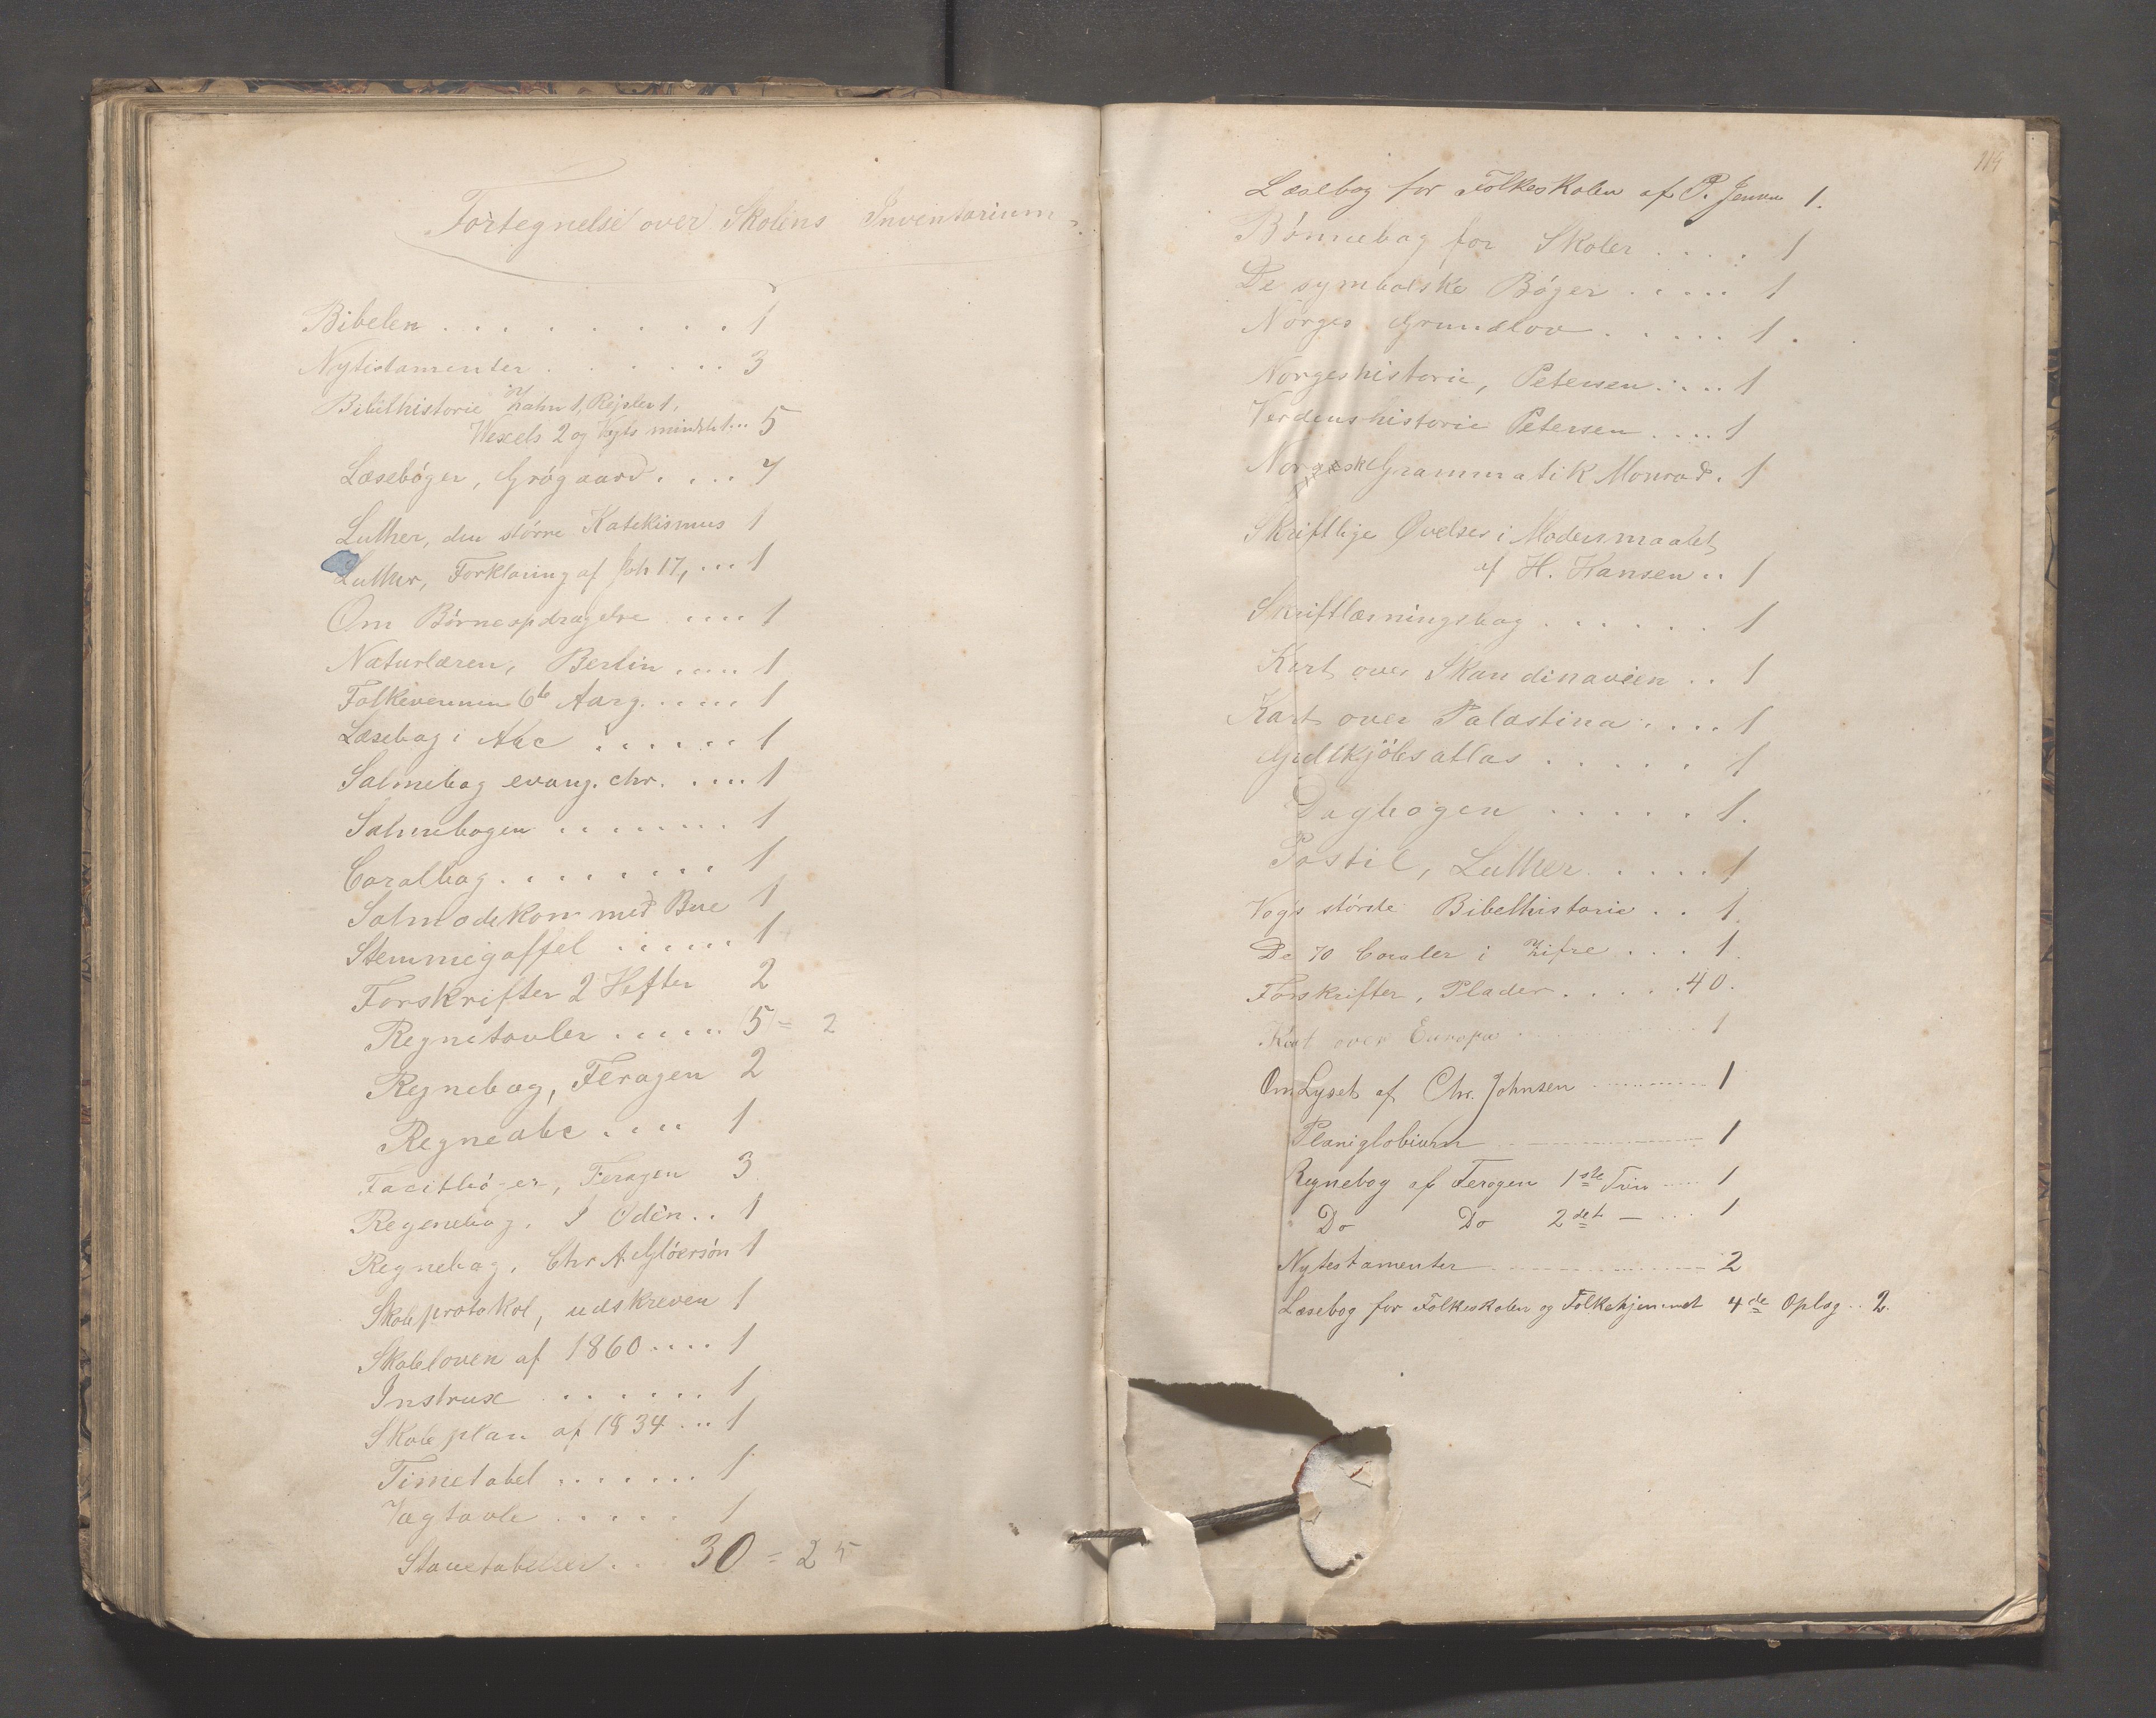 Fortegnelse over Skolens Inventarium.
Bibelen . . . . . . . . . 1
Nytistamenter . . . . . . 3
Bibelhistorie af Zahn 1,
Wexels 2 og Vogts mindst 1... 5
Læsebøger, Grøgaard . . . .
Luther, den større Katekismus 1
Luther, Forklaring af Joh 17, ... 1
Om Børneopdragelse .... 1
Naturlæren, Berlin .... 1
Folkevennen 6te Aarg. .... 1
Læsebog i Abc . . . . . . 1
Salmebog evang. chr. .... 1
Salmebogen . . . . . . . 1
Coralbog . . . . . . . . 1
Salmodekon med Bue 1
Stemmegaffel . . . . . . 1
Forskrifter 2 Hefter 2
Regnetavler . . . . . 5 = 2
Regnebog, Feragen 2
Regneabc .... 1
Facitbøger, Feragen 3
Regenebog, S Odin .. 1
Regnebog, Chr A Gløersøn 1
Skoleprotokol, udskreven 1
Skoleloven af 1860 .... 1
Instrux . . . . . . . 1
Skoleplan af 1834 ... 1
Timetabel . . . . . . . 1
Vægtavle . . . . . 1
Stavetabeller . . 30 = 25
114
Læsebog for Folkeskolen af P. Jensen 1.
Bønnebog for Skoler . . . . 1
De symbolske Bøger . . . . . 1
Norges Grundlov . . . . . 1.
Norgeshistorie, Petersen .... 1
Verdenshistorie Petersen .... 1
Norsk Grammatik Monrad. 1
Skriftlige Øvelser i Modersmaalet
af H. Hansen .. 1
Skriftlæsningsbog . . . . . . 1
Kart over Skandinavien . . 1
Kart over Palæstina .... 1
Godtkjøbsatlas . . . . . 1
Dagbogen . . . . . 1.
Postil, Luther . . . . . 1
Vogts største Bibelhistorie . . 1.
De 70 Coraler i Zifre . . . 1.
Forskrifter, Plader . . . . . 40.
Kart over Europa . . . . 1
Om Lyset af Chr. Johnsen .......... 1
Planiglobium .......... 1
Regnebog af Feragen 1ste Trin ..... 1
Do Do 2det — .... 1
Nytestamenter .......... 2
Læsebog for Folkeskolen og Folkehjemmet 4de Oplag .. 2.